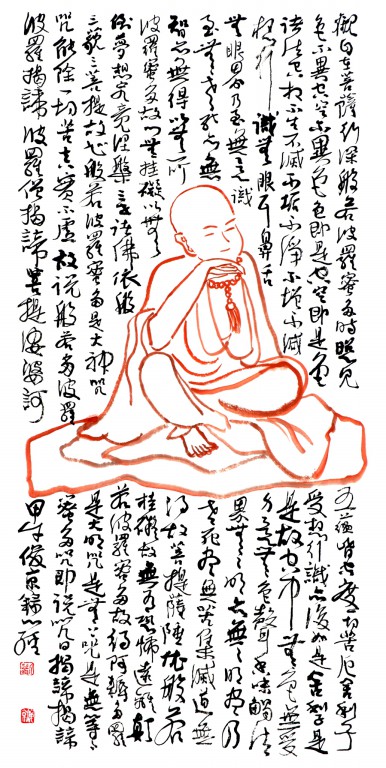 觀自在菩薩行深般若波羅蜜多時照見
五蘊皆空度一切苦厄舍利子
色不異空空不異色色即是空空即是色
受想行識亦復如是舍利子是
諸法空相不生不滅不垢不淨不增不減
是故空中無色無受
想行識無眼耳鼻舌
身意無色聲香味觸法
無眼界乃至無意識
界無無明亦無無明盡乃
至無老死亦無
老死盡無苦集滅道無
智亦無得以無所
得故菩提薩埵依般若
波羅蜜多故心無挂礙無
挂礙故無有恐怖遠離顛
倒夢想究竟涅槃三世諸佛依般
若波羅蜜多故得阿耨多羅
三藐三菩提故知般若波羅蜜多是大神咒
是大明咒是無上咒是無等等
咒能除一切苦真實不虛故說般若多波羅
蜜多咒即說咒曰揭諦揭諦
波羅揭諦波羅僧揭諦菩提薩婆訶
甲午俊京